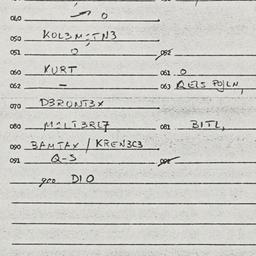 040 0
050 KOL3M;TN3
051 0 052
060 KURT 061 0
062 — 063
070 D3RONT3X
080 081 BITL,
090 3AMTAX / KREN3C3
091 Q-S 092
DIO